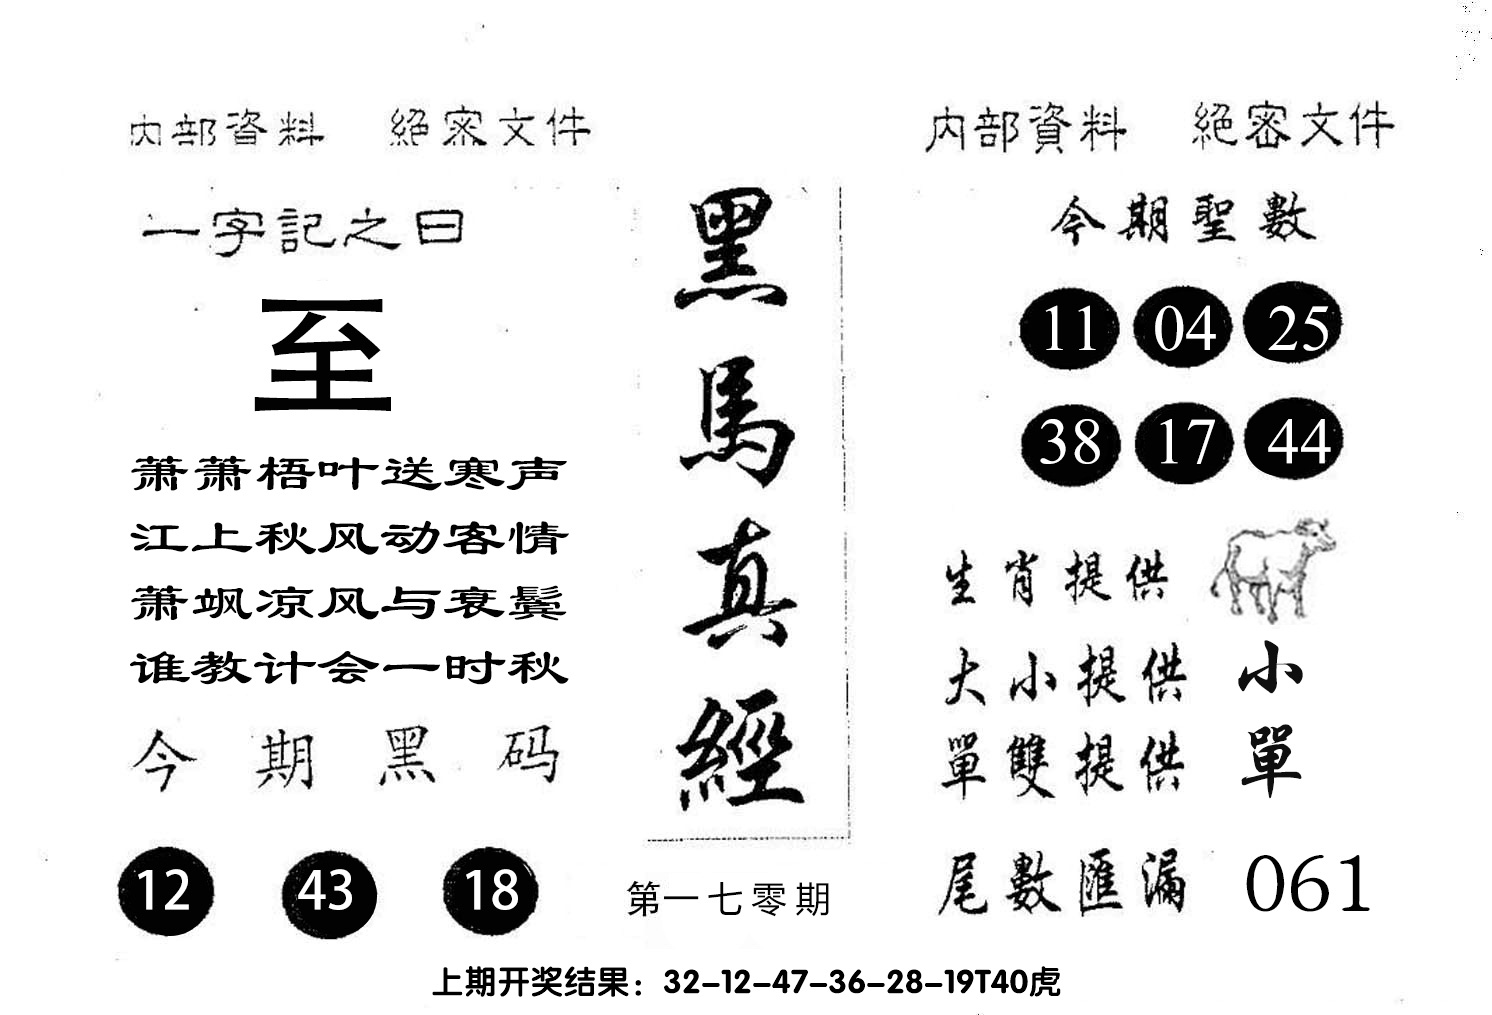 内部資料 絕密文件
一字記之曰
至
萧萧梧叶送寒声
江上秋风动客情
萧飒凉风与衰鬓
谁教计会一时秋
今期黑码
12 43 18
黑馬真經
第一七零期
内部資料 絕密文件
今期聖數
11 04 25
38 17 44
生肖提供
大小提供 小
單雙提供 單
尾數匯漏 061
上期开奖结果：32-12-47-36-28-19T40虎